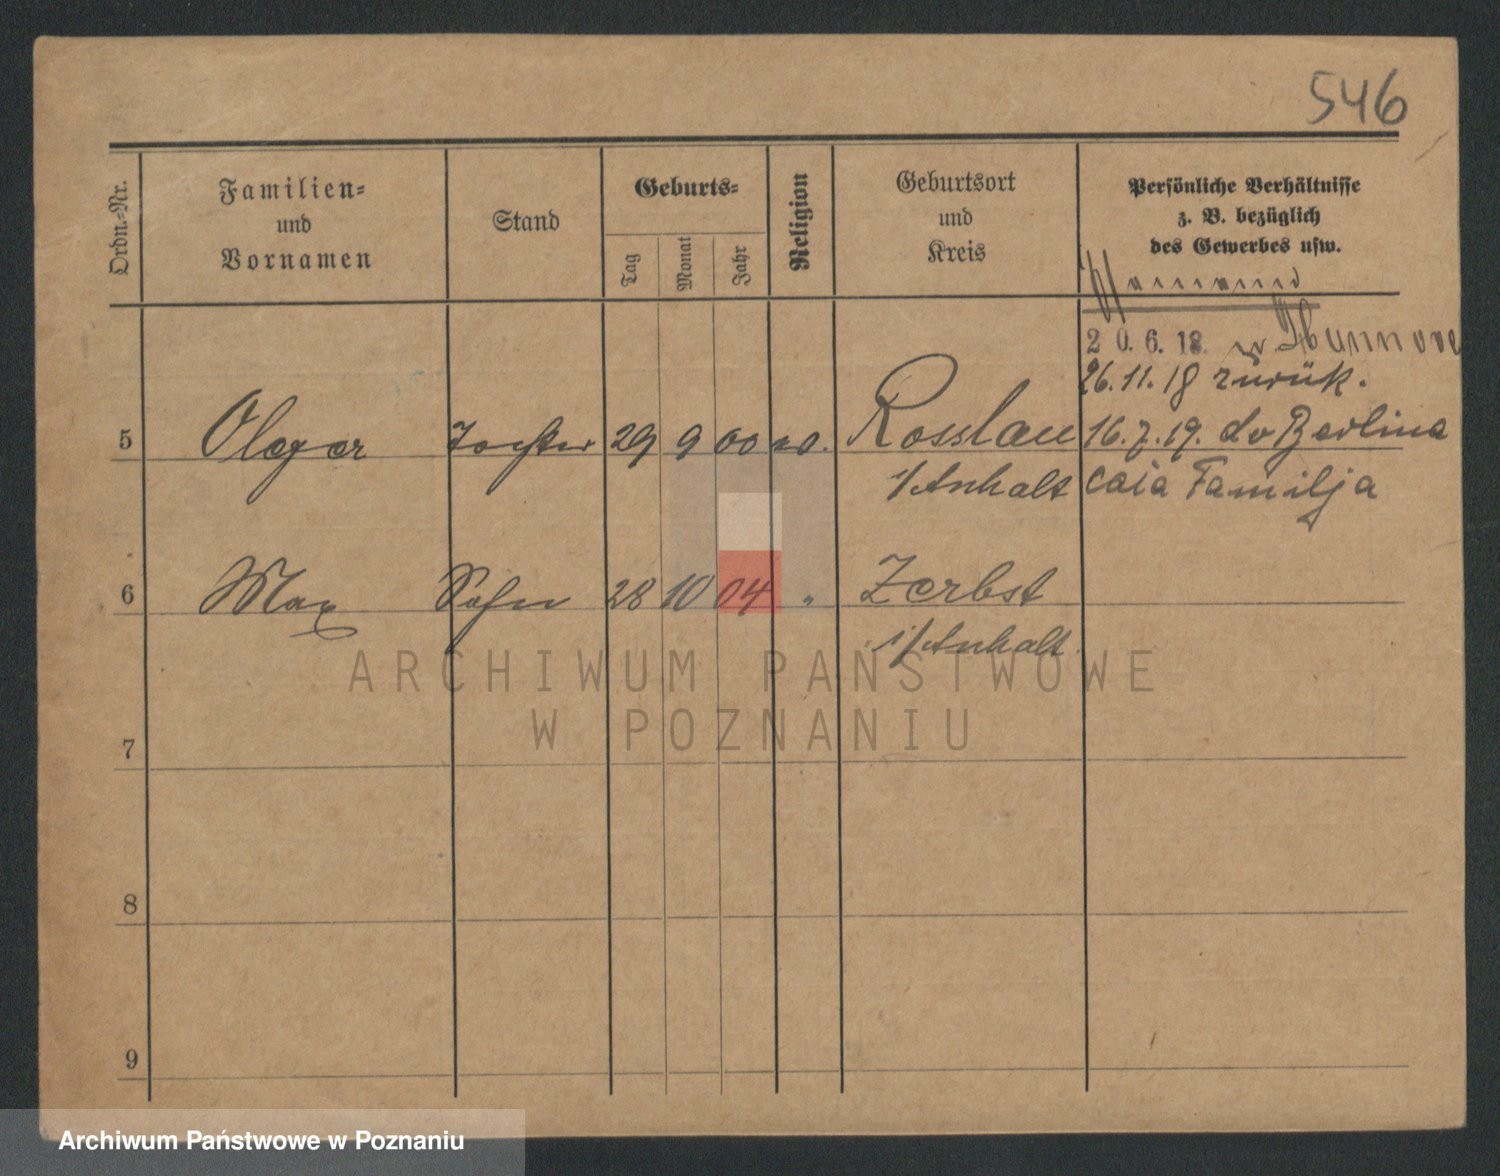 546
Ordn.-Nr.
Familien-
und
Vornamen
Stand
Geburts-
Tag
Monat
Jahr
Religion
Geburtsort
und
Kreis
Persönliche Verhältnisse
z. B. bezüglich
des Gewerbes usw.
20.6.18.
26.11.18 zurük.
5 Tochter 29 9 00 Rosslau 16.7.19. do Berlina
i/Anhalt cała Familja
6 Max Sohn 28 10 04 " Zerbst
i/Anhalt
ARCHIWUM PAŃSTWOWE
W POZNANIU
7
8
9
Archiwum Państwowe w Poznaniu